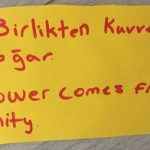 Birlikten Kuvve
oğar.
ower comes f
nity.